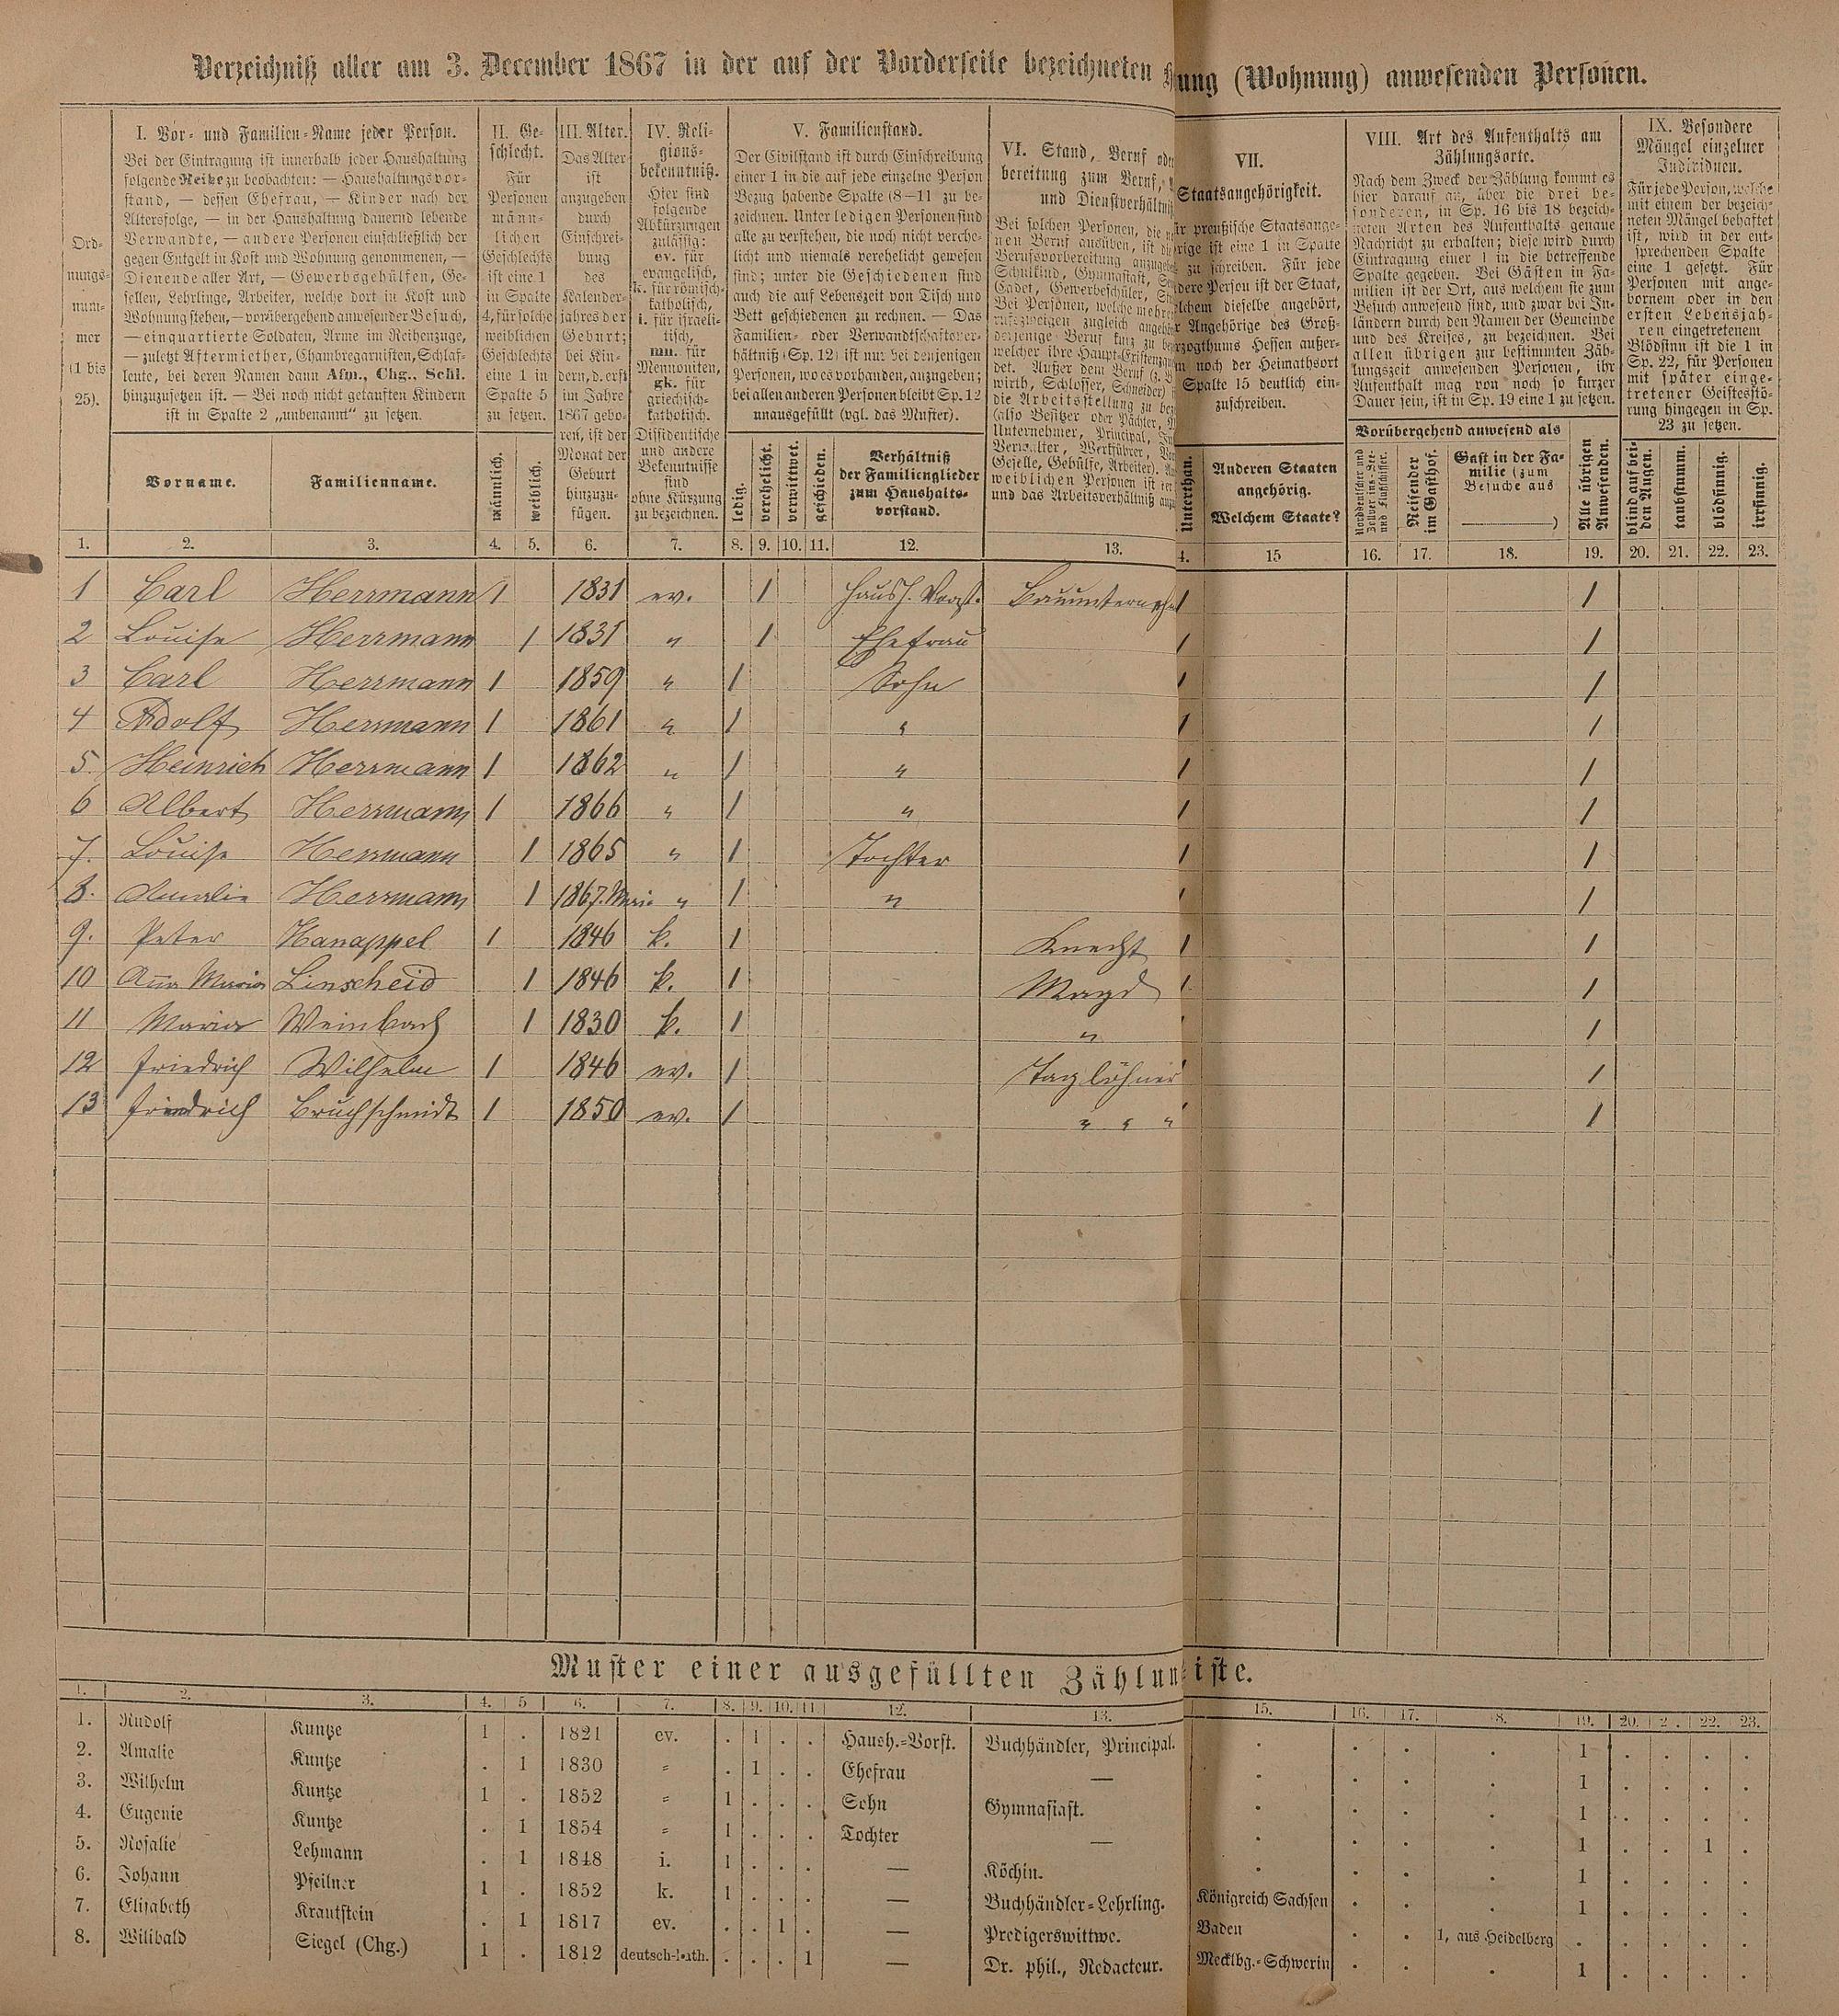 Verzeichniß aller am 3. December 1867 in der auf der Vorderseite bezeichneten ung (Wohnung) anwesenden Personen.
Ord-
nungs-
num-
mer
(1 bis
25).
I. Vor- und Familien-Name jeder Person.
Bei der Eintragung ist innerhalb jeder Haushaltung
folgende Reihe zu beobachten: — Haushaltungsvor-
stand, — dessen Ehefrau, — Kinder nach der
Altersfolge, — in der Haushaltung dauernd lebende
Verwandte, — andere Personen einschließlich der
gegen Entgelt in Kost und Wohnung genommenen, —
Dienende aller Art, — Gewerbsgehülfen, Ge-
sellen, Lehrlinge, Arbeiter, welche dort in Kost und
Wohnung stehen, — vorübergehend anwesender Besuch,
— einquartierte Soldaten, Arme im Reihenzuge,
— zuletzt Aftermiether, Chambregarnisten, Schlaf-
leute, bei deren Namen dann Afm., Chg., Schl.
hinzuzusetzen ist. — Bei noch nicht getauften Kindern
ist in Spalte 2 „unbenannt“ zu setzen.
Vorname. Familienname.
II. Ge-
schlecht.
Für
Personen
männ-
lichen
Geschlechts
ist eine 1
in Spalte
4, für solche
weiblichen
Geschlechts
eine 1 in
Spalte 5
zu setzen.
männlich. weiblich.
III. Alter.
Das Alter
ist
anzugeben
durch
Einschrei-
bung
des
Kalender-
jahres der
Geburt;
bei Kin-
dern, d. erst
im Jahre
1867 gebo-
ren, ist der
Monat der
Geburt
hinzuzu-
fügen.
IV. Reli-
gions-
bekenntniß.
Hier sind
folgende
Abkürzungen
zulässig:
ev. für
evangelisch,
k. für römisch-
katholisch,
i. für israeli-
tisch,
mn. für
Mennoniten,
gk. für
griechisch-
katholisch.
Dissidentische
und andere
Bekenntnisse
sind
ohne Kürzung
zu bezeichnen.
V. Familienstand.
Der Civilstand ist durch Einschreibung
einer 1 in die auf jede einzelne Person
Bezug habende Spalte (8—11) zu be-
zeichnen. Unter ledigen Personen sind
alle zu verstehen, die noch nicht verehe-
licht und niemals verehelicht gewesen
sind; unter die Geschiedenen sind
auch die auf Lebenszeit von Tisch und
Bett geschiedenen zu rechnen. — Das
Familien- oder Verwandtschaftsver-
hältniß (Sp. 12) ist nur bei denjenigen
Personen, wo es vorhanden, anzugeben;
bei allen anderen Personen bleibt Sp. 12
unausgefüllt (vgl. das Muster).
ledig. verehelicht. verwittwet. geschieden.
Verhältniß
der Familienglieder
zum Haushalts-
vorstand.
VI. Stand, Beruf oder
bereitung zum Beruf,
und Dienstverhältniß
Bei solchen Personen, die
nen Beruf ausüben, ist die
Berufsvorbereitung anzugeben
Schulkind, Gymnasiast,
Cadet, Gewerbeschüler,
Bei Personen, welche mehre
rufszweigen zugleich angehören
derjenige Beruf kurz zu be
welcher ihre Haupt-Existenz
det. Außer dem Beruf (z. B.
wirth, Schlosser, Schneider)
die Arbeitsstellung zu be
(also Besitzer oder Pächter,
Unternehmer, Principal,
Verwalter, Werkführer,
Geselle, Gehülfe, Arbeiter).
weiblichen Personen ist
und das Arbeitsverhältniß
VII.
Staatsangehörigkeit.
ür preußische Staatsange-
rige ist eine 1 in Spalte
zu schreiben. Für jede
dere Person ist der Staat,
lchem dieselbe angehört,
r Angehörige des Groß-
rzogthums Hessen außer-
m noch der Heimathsort
Spalte 15 deutlich ein-
zuschreiben.
Unterthan.
Anderen Staaten
angehörig.
Welchem Staate?
VIII. Art des Aufenthalts am
Zählungsorte.
Nach dem Zweck der Zählung kommt es
hier darauf an, über die drei be-
sonderen, in Sp. 16 bis 18 bezeich-
neten Arten des Aufenthalts genaue
Nachricht zu erhalten; diese wird durch
Eintragung einer 1 in die betreffende
Spalte gegeben. Bei Gästen in Fa-
milien ist der Ort, aus welchem sie zum
Besuch anwesend sind, und zwar bei In-
ländern durch den Namen der Gemeinde
und des Kreises, zu bezeichnen. Bei
allen übrigen zur bestimmten Zäh-
lungszeit anwesenden Personen, ihr
Aufenthalt mag von noch so kurzer
Dauer sein, ist in Sp. 19 eine 1 zu setzen.
Vorübergehend anwesend als
Norddeutscher und
Zollver ins-See-
und Flußschiffer.
Reisender
im Gasthof.
Gast in der Fa-
milie (zum
Besuche aus
)
Alle übrigen
Anwesenden.
IX. Besondere
Mängel einzelner
Individuen.
Für jede Person, welche
mit einem der bezeich-
neten Mängel behaftet
ist, wird in der ent-
sprechenden Spalte
eine 1 gesetzt. Für
Personen mit ange-
bornem oder in den
ersten Lebensjah-
ren eingetretenem
Blödsinn ist die 1 in
Sp. 22, für Personen
mit später einge-
tretener Geistesstö-
rung hingegen in Sp.
23 zu setzen.
blind auf bei-
den Augen.
taubstumm. blödsinnig. irrsinnig.
1. 2. 3. 4. 5. 6. 7. 8. 9. 10. 11. 12. 13. 4. 15 16. 17. 18. 19. 20. 21. 22. 23.
1 Carl Herrmann 1 1831 ev. 1 Haush. Vorst. Bauunterneh 1 1
2 Louise Herrmann 1 1831 " 1 Ehefrau 1 1
3 Carl Herrmann 1 1859 " 1 Sohn 1 1
4 Adolf Herrmann 1 1861 " 1 " 1 1
5. Heinrich Herrmann 1 1862 " 1 " 1 1
6 Albert Herrmann 1 1866 " 1 " 1 1
7. Louise Herrmann 1 1865 " 1 Tochter 1 1
8. Amalie Herrmann 1 1867. " 1 " 1 1
9. Peter Hanappel 1 1846 k. 1 Knecht 1 1
10 Anna Maria Linscheid 1 1846 k. 1 Magd 1 1
11 Maria Weinbach 1 1830 k. 1 " 1 1
12 Friedrich Wilhelm 1 1846 ev. 1 Taglöhner 1 1
13 Friedrich Bruchschmidt 1 1850 ev. 1 " " " 1 1
Muster einer ausgefüllten Zählun iste.
1. 2. 3. 4. 5 6. 7. 8. 9. 10. 11 12. 13. 15. 16. 17. 18. 19. 20. 2 . 22. 23.
1. Rudolf Kuntze 1 . 1821 ev. . 1 . . Haush.-Vorst. Buchhändler, Principal. . . . . 1 . . . .
2. Amalie Kuntze . 1 1830 " . 1 . . Ehefrau — . . . . 1 . . . .
3. Wilhelm Kuntze 1 . 1852 " 1 . . . Sohn Gymnasiast. . . . . 1 . . . .
4. Eugenie Kuntze . 1 1854 " 1 . . . Tochter — . . . . 1 . . 1 .
5. Rosalie Lehmann . 1 1848 i. 1 . . . — Köchin. . . . . 1 . . . .
6. Johann Pfeilner 1 . 1852 k. 1 . . . — Buchhändler-Lehrling. Königreich Sachsen . . . 1 . . . .
7. Elisabeth Krautstein . 1 1817 ev. . . 1 . — Predigerswittwe. Baden . . 1, aus Heidelberg . . . . .
8. Wilibald Siegel (Chg.) 1 . 1812 deutsch-kath. . . . 1 — Dr. phil., Redacteur. Mecklbg.-Schwerin . . . 1 . . . .